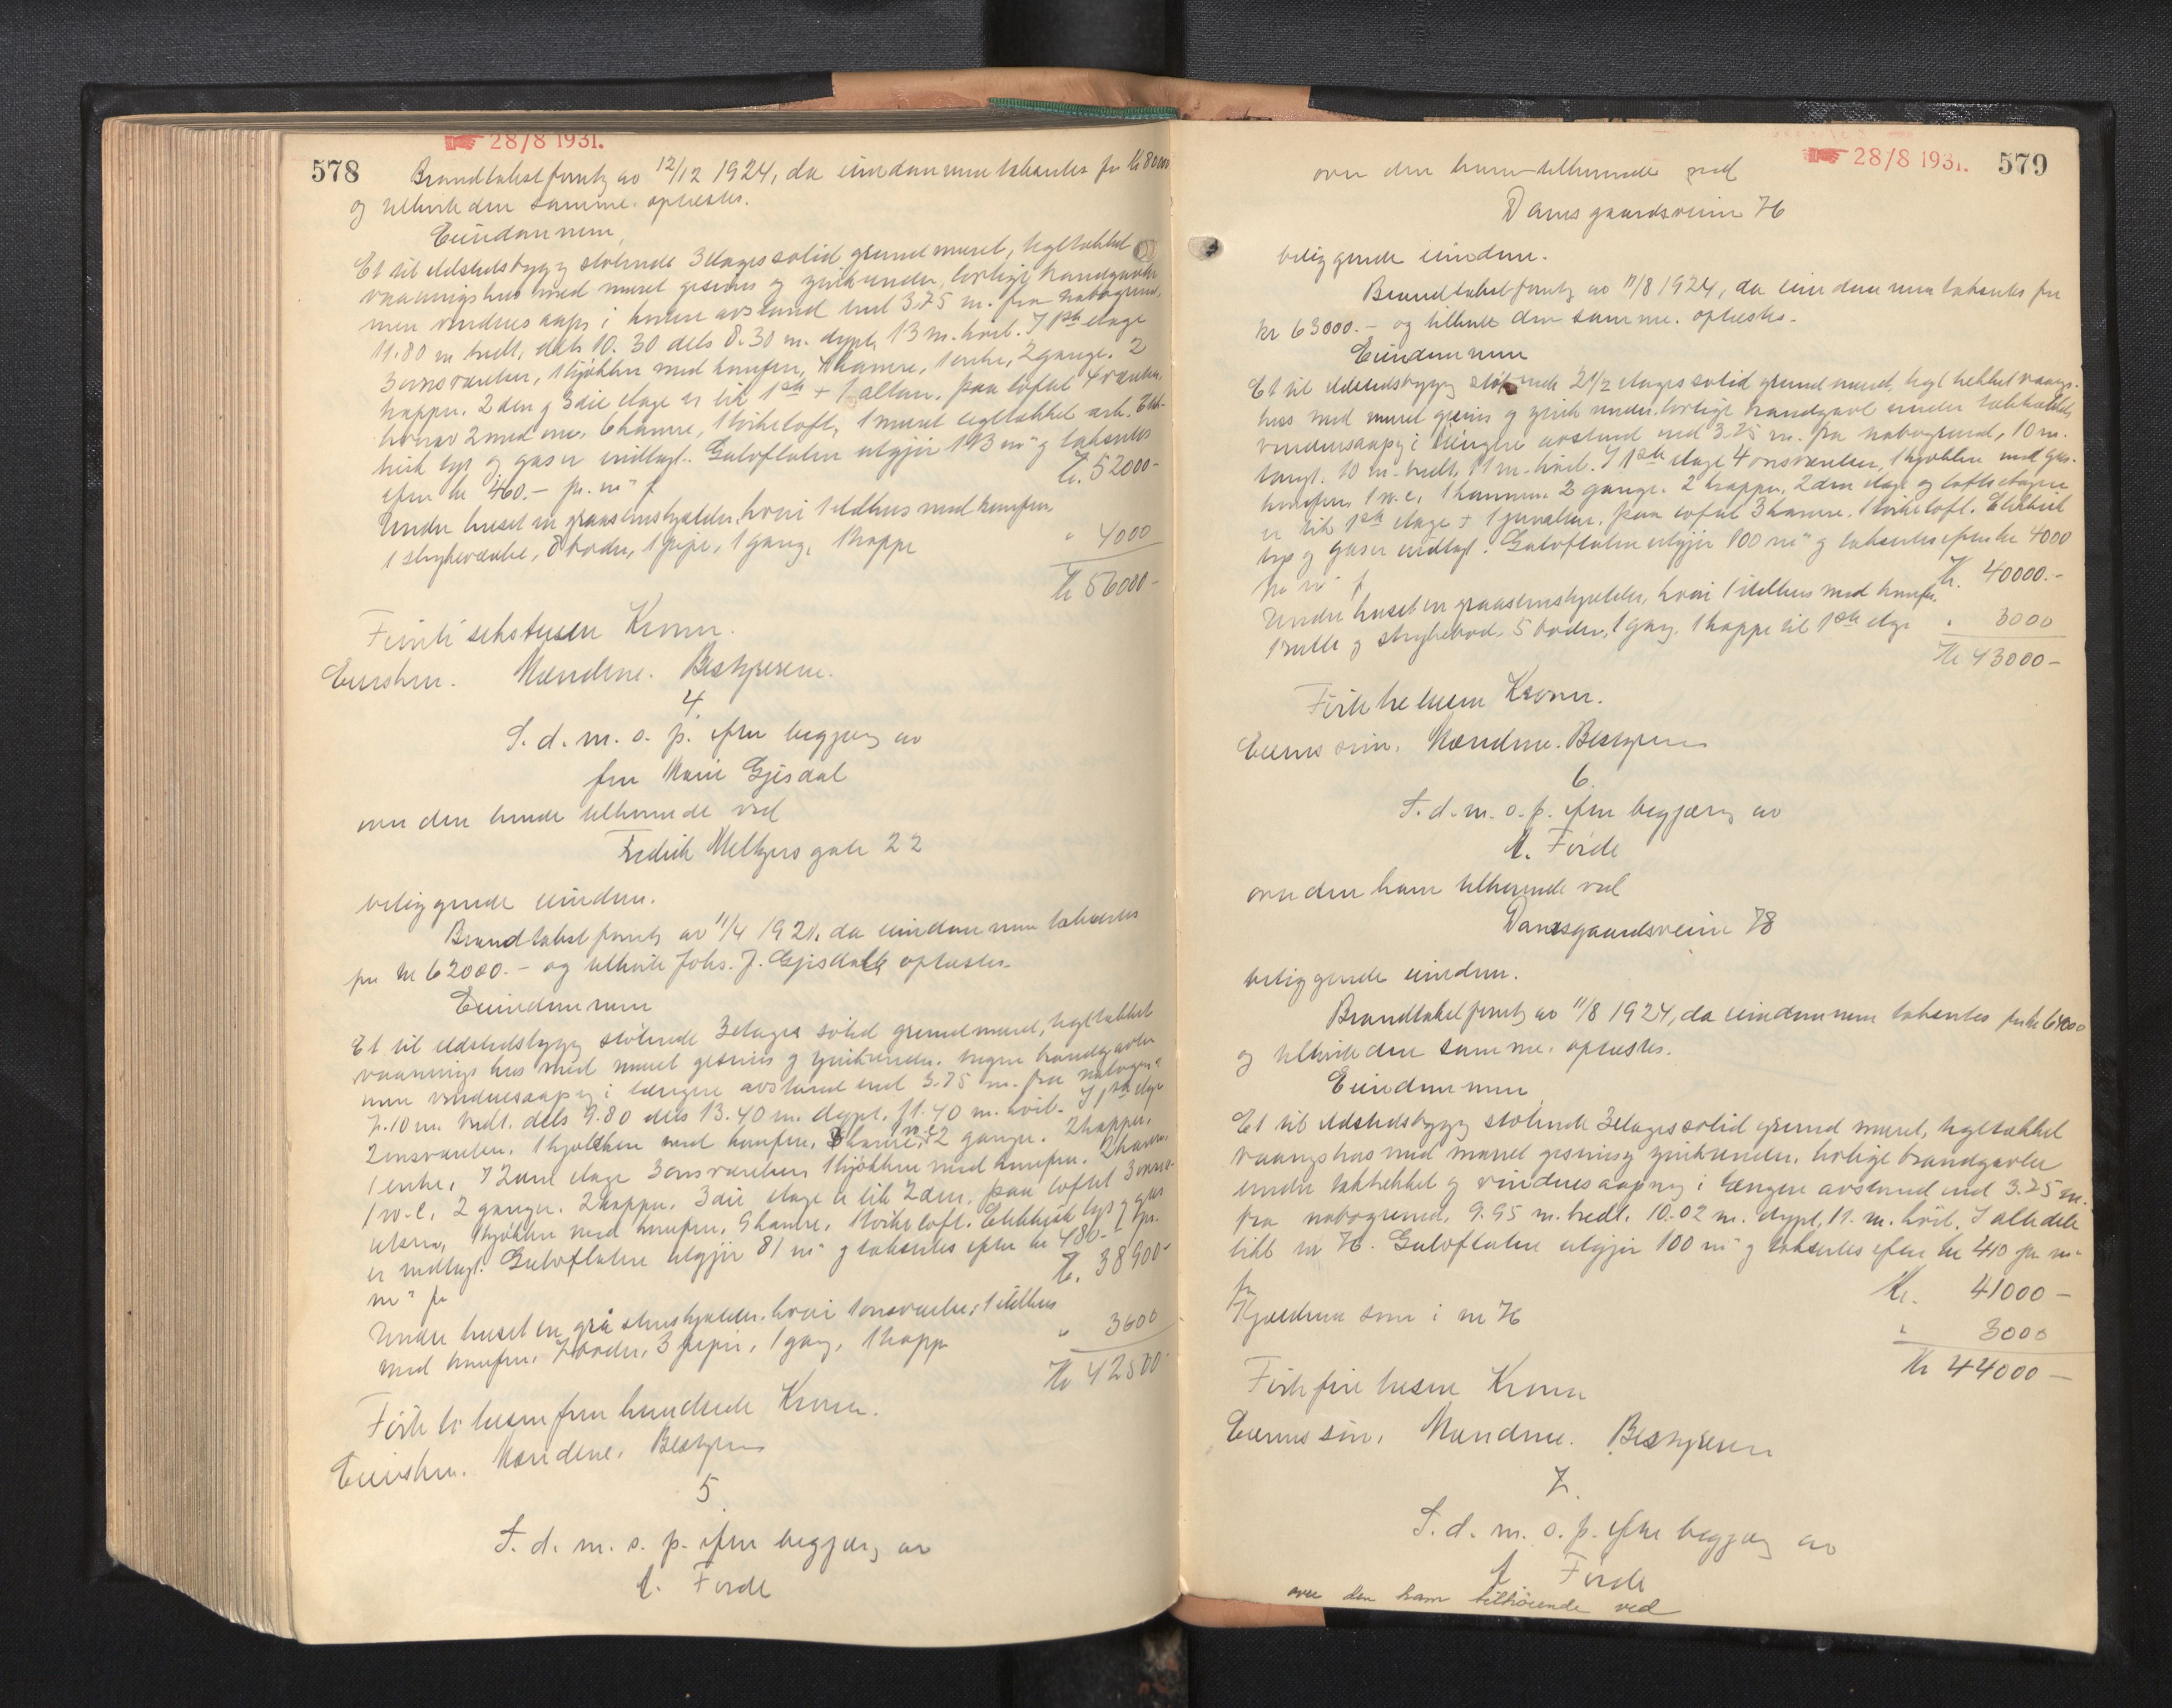 28/8 1931.
578
Brandtakstforretng av 12/12 1924, da eiendommen taksertes for kr 80000
og tilhørte den samme. oplæstes.
Eiendommen
Et til ildstedsbygg støtende 3 etages solid grundmuret, tegltækket
vaaningshus med muret gesims og zinkrender, lovlige brandgavle
men vinduesaapn i kortere avstand end 3.75 m. fra nabogrund,
11.80 m bredt, dels 10.30 dels 8.30 m. dypt, 13 m. høit. I 1ste etage
3 onsværelser, 1 kjøkken med komfyr, 4 kamre, 1 entre, 2 gange. 2
trapper. 2den og 3die etage er lik 1ste + 1 altan. paa loftet 4 værelser
hvorav 2 med ovn, 6 kamre, 1 tørkeloft, 1 muret tegltækket ark. Elek-
trisk lys og gas er indlagt. Gulvflaten utgjør 113 m² og taksertes
efter kr 460.- pr. m² f
Kr. 52000-
Under huset en graastenskjælder, hvori 1 ildhus med komfyr,
1 strykeværelse, 8 boder, 1 pipe, 1 gang, 1 trappe
" 4000
Kr 56000-
Femti seks tusen Kroner.
Eiersken. Mændene. Bestyreren.
4.
S. d. m. o. p. efter begjæring av
fru Marie Gjesdal
over den hende tilhørende ved
Fredrik Meltzers gate 22
beliggende eiendom.
Brandtakstforretng av 11/4 1921, da eiendommen taksertes
for kr 62000.- og tilhørte Johs. J. Gjesdal oplæstes.
Eiendommen
Et til ildstedsbygg støtende 3 etages solid grundmuret, tegltækket
vaanings hus med muret gesims og zinkrender. ingen brandgavler
men vinduesaapng i længere avstand end 3.75 m. fra nabogr.
7.10 m. bredt. dels 9.80 dels 13.40 m. dypt. 11.40 m. høit. I 1ste etge
2 onsværelser. 1 kjøkken med komfyr, 3 kamre, 1 w.c. 2 ganger. 2 trapper,
1 entre, I 2den etage 3 onsværelser 1 kjøkken med komfyr. 2 kamre
1 w.c. 2 ganger. 2 trapper. 3die etage er lik 2den. paa loftet 3 onsvæ-
relser, 1 kjøkken med komfyr, 9 kamre, 1 tørkeloft. Elektrisk lys og gas
er indlagt. Gulvflaten utgjør 81 m² og taksertes efter kr 480.- pr.
m² fr
Kr. 38900-
Under huset en grå stenskjælder. hvori 1 onsværelse, 1 ildhus
med komfyr, 7 boder, 3 piper, 1 gang, 1 trapp
" 3600
Kr 42500-
Førti to tusen fem hundrede Kroner.
Eiersken. Mændene. Bestyreren
5
S. d. m. o. p. efter begjæring av
A. Førde
28/8 1931.
579
over den ham tilhørende ved
Damsgaardsveien 76
beliggende eiendom.
Brandtakstforretng av 11/8 1924, da eiendommen taksertes for
kr 63000.- og tilhørte den samme. oplæstes.
Eiendommen
Et til ildstedsbygg støtende 2 1/2 etages solid grundmuret, tegltækket vaangs-
hus med muret gesims og zinkrender. lovlige brandgavl under taktækket
vinduesaapng i længere avstand end 3.75 m. fra nabogrund, 10 m.
langt. 10 m. bredt, 11 m. høit. I 1ste etage 4 onsværelser, 1 kjøkken med gas-
komfyr, 1 w.c. 1 kammer. 2 gange. 2 trapper, 2den etage og loftsetagen
er lik 1ste etage + 1 altan. paa loftet 3 kamre. 1 tørkeloft. Elektrisk
lys og gas er indlagt. Gulvflaten utgjør 100 m² og taksertes efter kr 4000
pr m² f
Kr. 40000.-
Under huset en graastenskjælder, hvori 1 ildhus med komfyr.
1 rulle og strykebod, 5 boder, 1 gang, 1 trappe til 1ste etge
" 3000
Kr 43000-
Førti tre tusen Kroner.
Eierens søn. Mændene. Bestyreren
6.
S. d. m. o. p. efter begjæring av
A. Førde
over den ham tilhørende ved
Damsgaardsveien 78
beliggende eiendom.
Brandtakstforretng av 11/8 1924, da eiendommen taksertes for kr 64000
og tilhørte den samme. oplæstes.
Eiendommen
Et til ildstedsbygg støtende 3 etages solid grundmuret, tegltækket
vaangshus med muret gesims og zinkrender. lovlige brandgavler
under taktækket og vinduesaapng i længere avstand end 3.75 m.
fra nabogrund. 9.95 m. bredt. 10.02 m. dypt, 11. m. høit. I alle dele
likt nr 76. Gulvflaten utgjør 100 m² og taksertes efter kr 410 pr m²
for
Kr. 41000-
Kjælderen som i nr 76
" 3000
Kr 44000-
Førti fire tusen Kroner
Eierens søn. Mændene. Bestyreren
7.
S. d. m. o. p. efter begjæring av
A. Førde
over den ham tilhørende ved